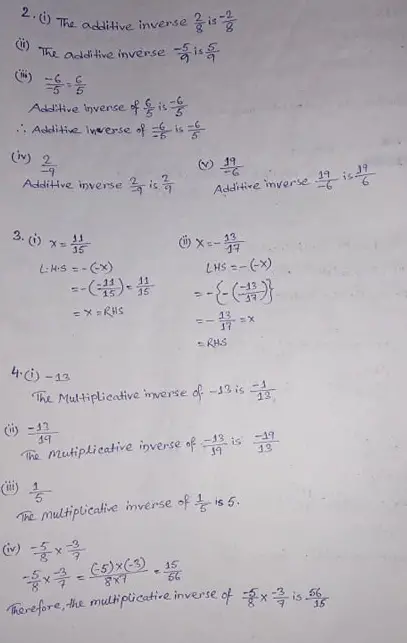 2. (i) The additive inverse 2/8 is -2/8
(ii) The additive inverse -5/9 is 5/9
(iii) -6/-5 = 6/5
Additive inverse of 6/5 is -6/5
∴ Additive inverse of -6/-5 is -6/5
(iv) 2/-9
Additive inverse 2/-9 is 2/9
(v) 19/-6
Additive inverse 19/-6 is 19/6
3. (i) x = 11/15
L.H.S = -(-x)
= -(-11/15) = 11/15
= x = RHS
(ii) x = -13/17
LHS = -(-x)
= -{-(-13/17)}
= -13/17 = x
= RHS
4. (i) -13
The Multiplicative inverse of -13 is -1/13
(ii) -13/19
The mutiplicative inverse of -13/19 is -19/13
(iii) 1/5
The multiplicative inverse of 1/5 is 5.
(iv) -5/8 × -3/7
-5/8 × -3/7 = (-5)×(-3)/8×7 = 15/56
Therefore, the multiplicative inverse of -5/8 × -3/7 is 56/15